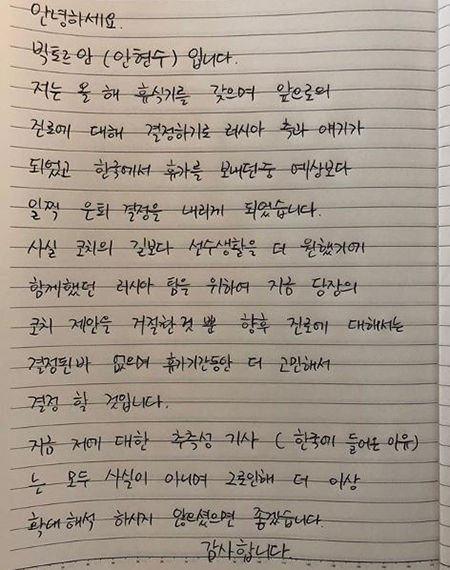 안녕하세요.
빅토르 안 (안현수) 입니다.
저는 올 해 휴식기를 갖으며 앞으로의
진로에 대해 결정하기로 러시아 측과 얘기가
되었고 한국에서 휴가를 보내던중 예상보다
일찍 은퇴 결정을 내리게 되었습니다.
사실 코치의 길보다 선수생활을 더 원했기에
함께했던 러시아 팀을 위하여 지금 당장의
코치 제안을 거절한것 뿐 향후 진로에 대해서는
결정된바 없으며 휴가기간동안 더 고민해서
결정 할 것입니다.
지금 저에 대한 추측성 기사 (한국에 들어온 이유)
는 모두 사실이 아니며 그로인해 더 이상
확대해석 하시지 않으셨으면 좋겠습니다.
감사합니다